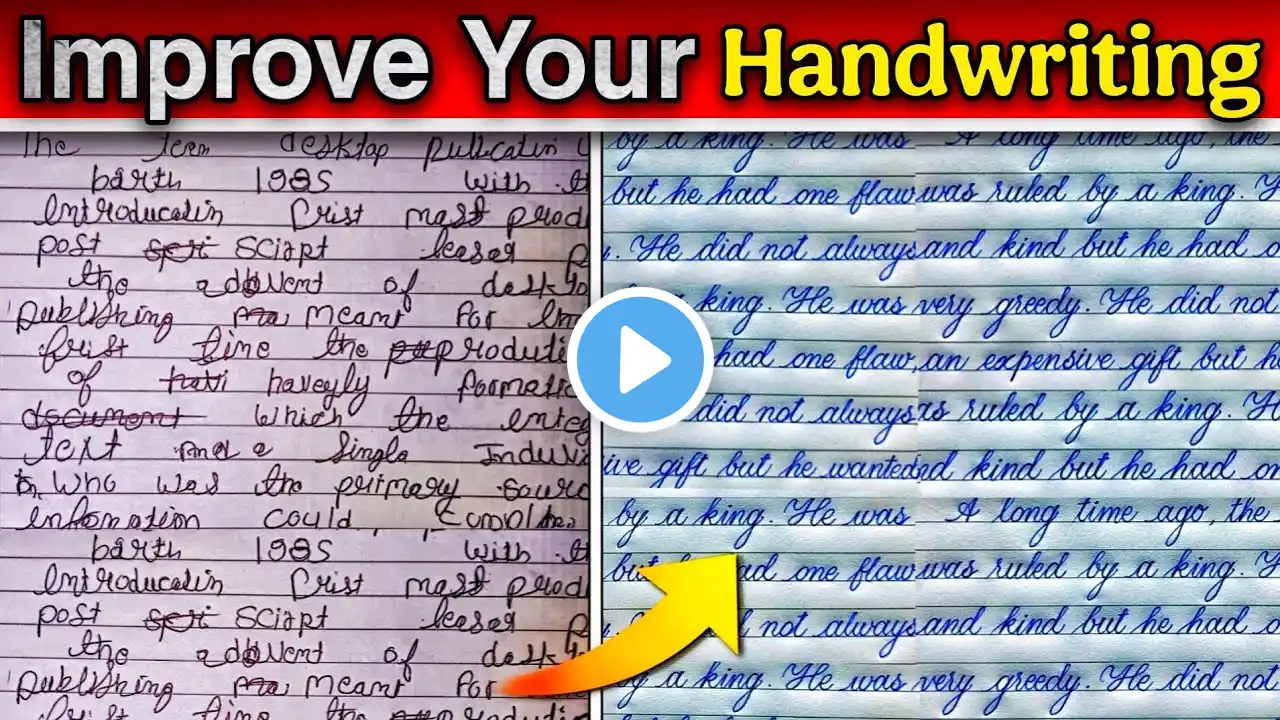 Improve Your Handwriting
The term desktop publicatin
barth 1985 with th
Introducatin Frist mast prod
post seri sciapt leaser p
the addvent of deskto
publishing ma meant for Im
frist time the pup produti
of hatti haveyly formatio
document which the integ
text and a Singla Induvi
to who was the primary sourc
Infomation could
barth 1985 with th
Introducatin Frist mast prod
post seri sciapt leaser p
the addvent of desk
publishing ma meant for
frist time the pup produtin
by a king. He was
but he had one flaw
. He did not always
king. He was
had one flaw,
did not always
ive gift but he wanted
by a king. He was
but ad one flaw
not always
a king. He was
A long time ago, the
was ruled by a king. H
and kind but he had o
very greedy. He did not
an expensive gift but h
as ruled by a king. H
nd kind but he had on
A long time ago, the
was ruled by a king. H
and kind but he had o
very greedy. He did not